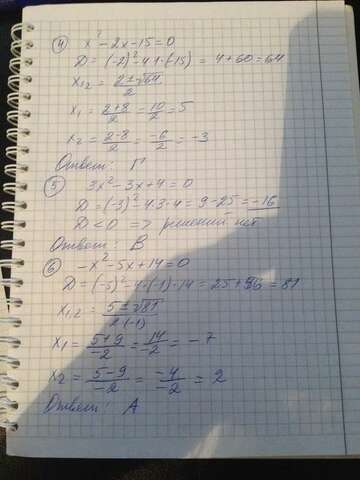 ④ x² - 2x - 15 = 0
D = (-2)² - 4·1·(-15) = 4 + 60 = 64
x₁,₂ = (2 ± √64)/2
x₁ = (2+8)/2 = 10/2 = 5
x₂ = (2-8)/2 = -6/2 = -3
Ответ: Г
⑤ 3x² - 3x + 4 = 0
D = (-3)² - 4·3·4 = 9 - 25 = -16
D < 0 => решений нет
Ответ: В
⑥ -x² - 5x + 14 = 0
D = (-5)² - 4·(-1)·14 = 25 + 56 = 81
x₁,₂ = (5 ± √81)/(2·(-1))
x₁ = (5+9)/-2 = 14/-2 = -7
x₂ = (5-9)/-2 = -4/-2 = 2
Ответ: А